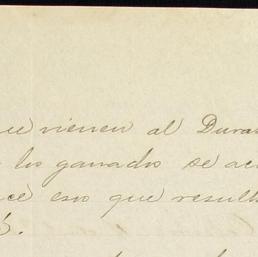 que vienen al Duras
los ganados se ac
ce eso que result
é.